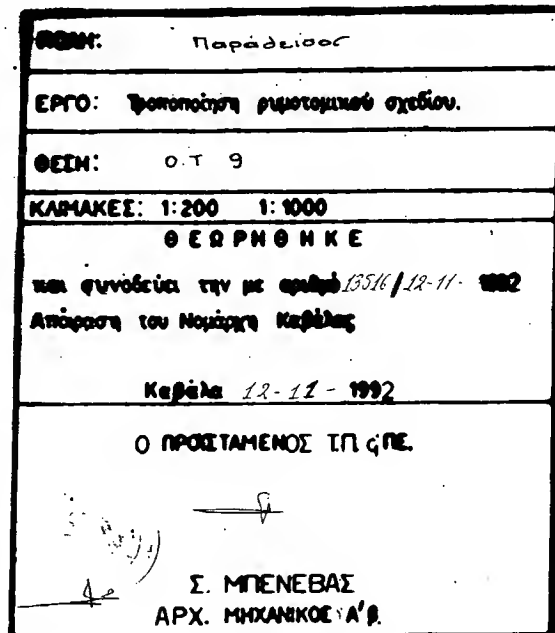 ΠΟΛΗ: Παράδεισος
ΕΡΓΟ: Τροποποίηση ρυμοτομικού σχεδίου.
ΘΕΣΗ: Ο.Τ 9
ΚΛΙΜΑΚΕΣ: 1:200 1:1000
ΘΕΩΡΗΘΗΚΕ
και συνοδεύει την με αριθμό 13516/12-11-1992
Απόφαση του Νομάρχη Καβάλας
Καβάλα 12-11-1992
Ο ΠΡΟΙΣΤΑΜΕΝΟΣ Τ.Π. ΠΕ.
Σ. ΜΠΕΝΕΒΑΣ
ΑΡΧ. ΜΗΧΑΝΙΚΟΣ Α'β.